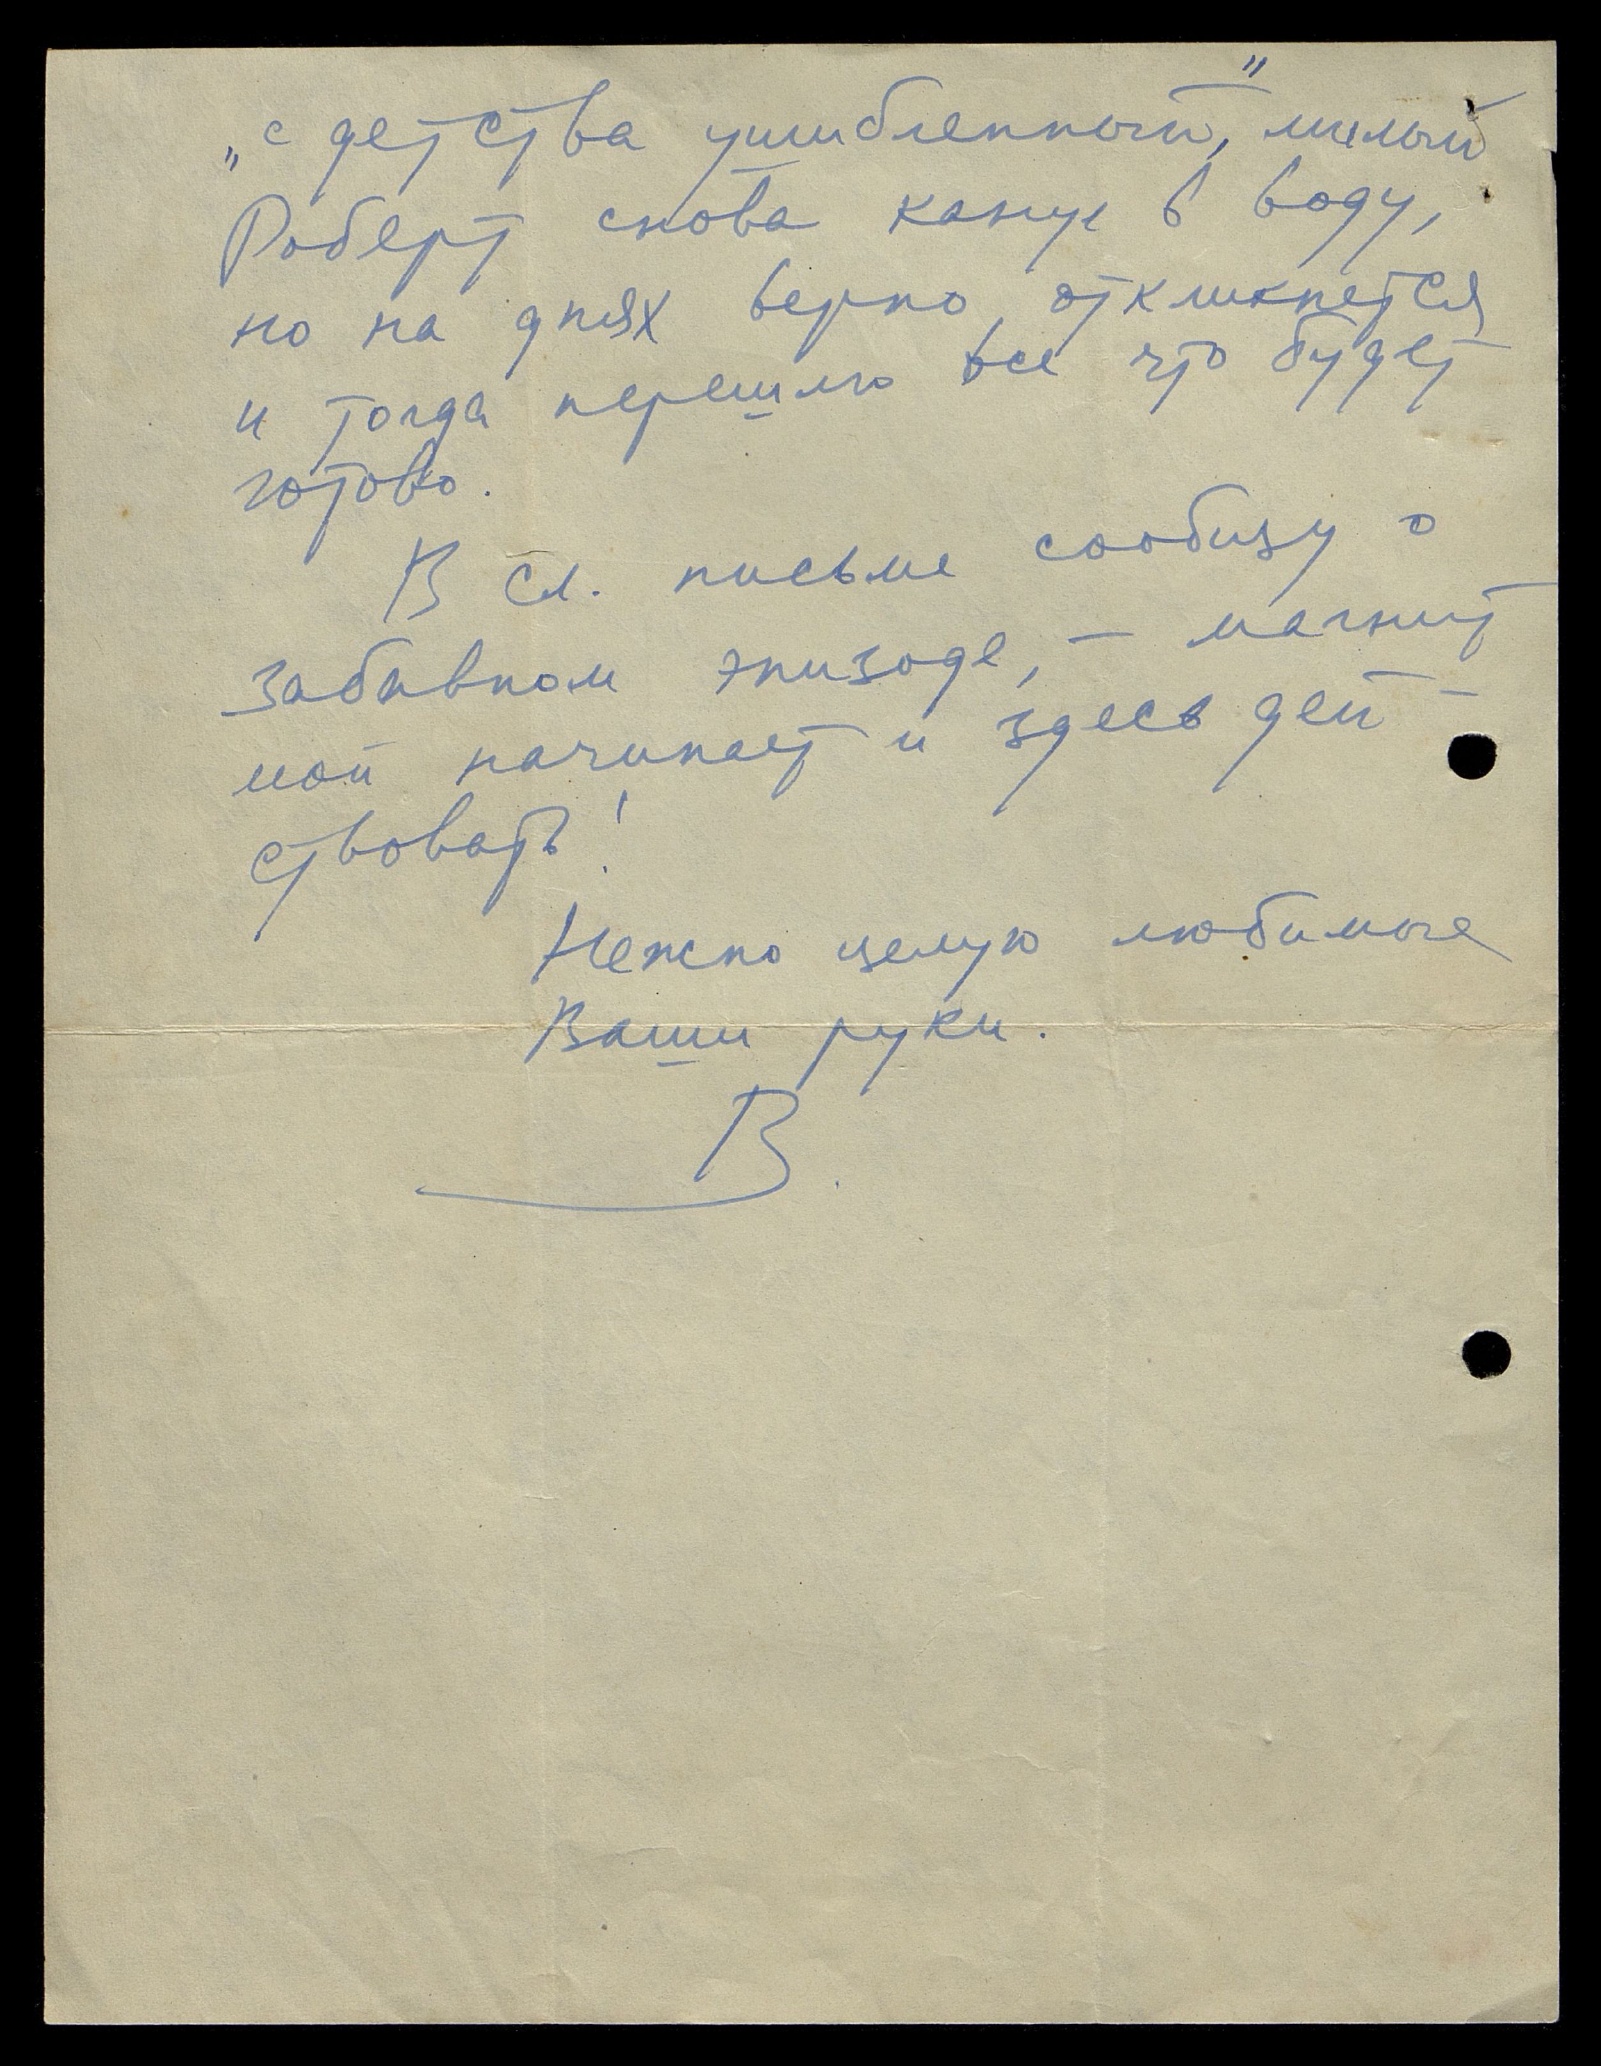 „с детства ушибленный“, милый
Роберт снова канул в воду,
но на днях верно откликнется
и тогда перешлю все что будет
готово.
В сл. письме сообщу о
забавном эпизоде, — магнит
мой начинает и здесь дей-
ствовать!
Нежно целую любимые
Ваши руки.
В.